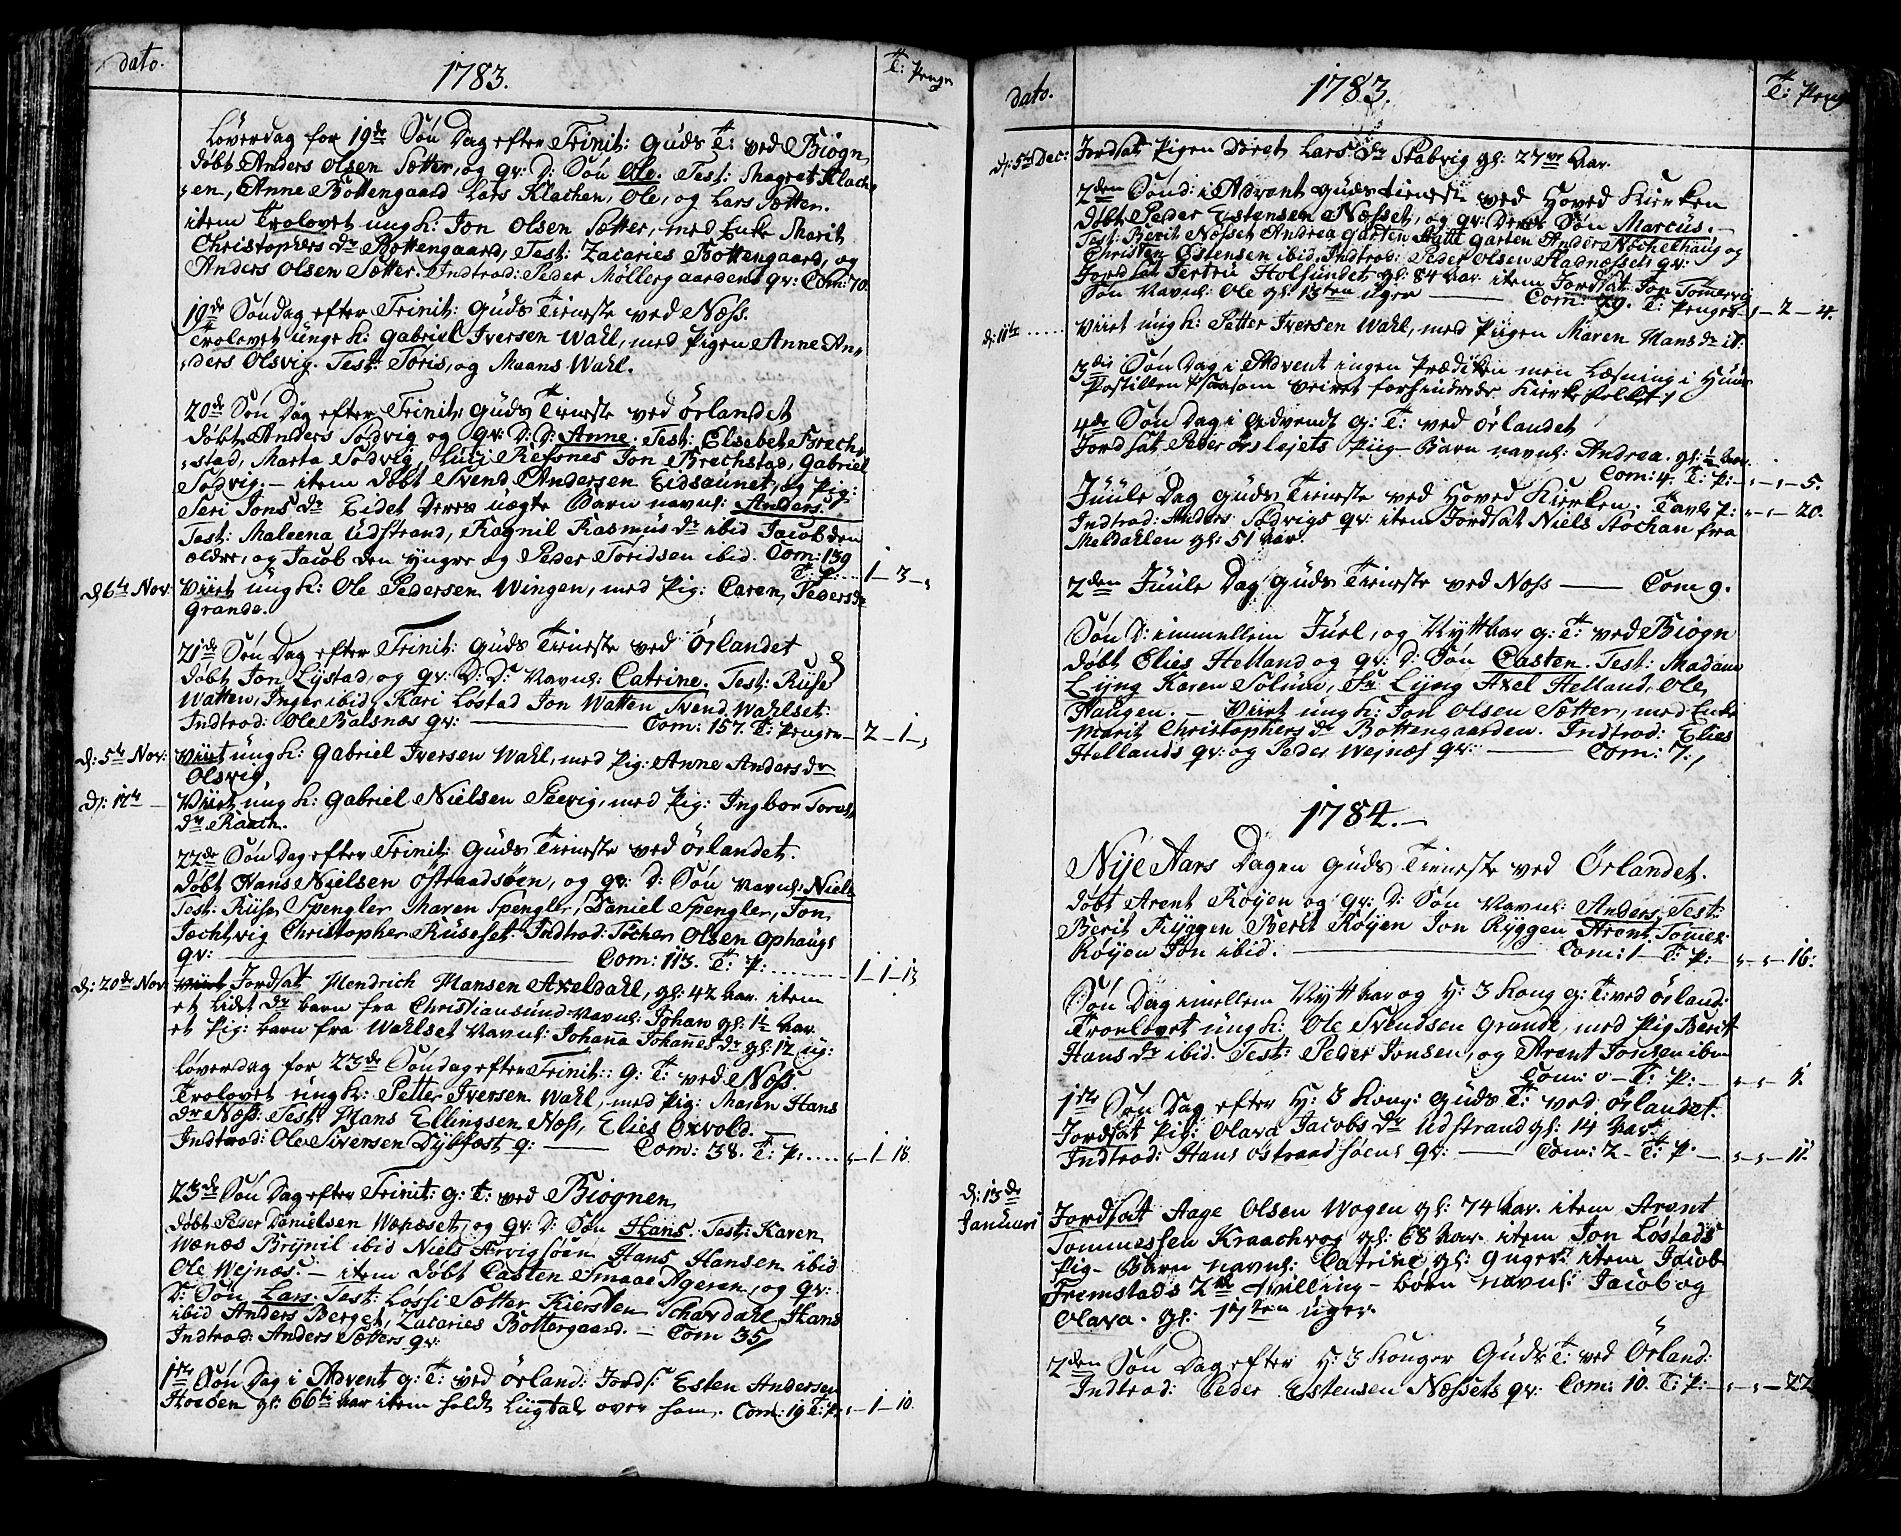 dato.
1783.
T: Penge
Löverdag for 19de Sön Dag efter Trinit: Guds T: ved Biogn
döbt Anders Olsen Sætter, og qv: D: Sön Ole. Test: Magret Klach-
en, Anne Bottengaard Lars Klachen, Ole, og Lars Sætter.
item Trolovet ungk: Jon Olsen Sætter, med Enke Marit
Christophers dr Bottengaard, Test: Zacaries Bottengaard, og
Anders Olsen Sætter. Indtrod: Peder Möllergaardens qv: Com: 70.
19de Söndag efter Trinit: Guds Tieneste ved Næss.
Trolovet unge k: Gabriel Iversen Wahl, med Pigen Anne An-
ders Olsvig. Test: Toris, og Maans Wahl.
20de Sön Dag efter Trinit: Guds Tieneste ved Örlandet
döbt Anders Södvig og qv: D: D: Anne. Test: Elisebet Brech-
stad, Marta Södvig, Resnes Jon Brechstad, Gabriel
Södvig. - item döbt Svend Andersen Eidsaunet, og Pig:
Seri Jons dr Eidet Deres uægte Barn navnl: Anders.
Test: Maleena Udstrand, Ragnil Rasmus dr ibid Jacob den
ældre, og Jacob den yngre og Peder Toridsen ibid. Com: 139
T: P: .... 1 - 3 -
d: 6te Nov: Viiet ungk: Ole Pedersen Wingen, med Pig: Caren Peders dr
Grande.
21de Sön Dag efter Trinit: Guds Tieneste ved Örlandet
döbt Jon Lystad, og qv: D: D: Navnl: Catrine. Test: Ruse
Watten, Inger ibid, Kari Löstad Jon Watten Svend Wahlset.
Indtrod: Ole Balsnæs qv: Com: 157. T: Penge - 2 - 1 -
d: 5te Nov: Viiet ungk: Gabriel Iversen Wahl, med Pig: Anne Anders dr
Olsvig,
d: 12te - Viiet ungk: Gabriel Nielsen Seevig, med Pig: Ingbor Tores
dr Raach.
22de Sön Dag efter Trinit: Guds Tieneste ved Örlandet.
döbt Hans Nielsen Östraadsöen, og qv: D: Sön Navnl: Niels
Test: Ruse Spengler Maren Spengler, Daniel Spengler, Jon
Jechtvig Christopher Ruseset. Indtrod: Olsen Ophaugs
qv: Com: 113. T: P: ........ 1 - 1 - 13
d: 20de Nov: Jordsat Hendrich Hansen Axeldahl, gl: 42 Aar. item
et lidet barn fra Christiansund Navnl: Johan gl: 1½ Aar.
et Pig: barn fra Wahlset Navnl: Johana Johanes dr gl: 12 ug:
Löverdag for 23de Söndag efter Trinit: G: T: ved Næss.
Trolovet ungk: Petter Iversen Wahl, med Pig: Maren Hans
dr Næss. Test: Hans Ellingsen Næss, Elies Oxvold.
Indtrod: Ole Siversen Dybfest q: Com: 38. T: P: ..... - 1 - 18.
23de Sön Dag efter Trinit: G: T: ved Biognen
döbt Peder Danielsen Wænæset, og qv: D: Sön Hans. Test: Karen
Wænæs Brynil ibid Niels Arvigsöen Hans Hansen ibid
Ole Wejnæs. - item döbt Casten Smaae Ageren, og qv:
D: Sön Lars. Test: Lossi Sætter Kiersten Schavdahl, Hans
ibid Anders Berget, Zacaries Bottengaard. - Com 35
Indtrod: Anders Sætters qv:
1ste Sön Dag i Advent G: T: ved Örland: Jords: Esten Andersen
Hoeden gl: 66ti Aar item holdt Liigtale over ham. Com: 19 T: P: - 1 - 10.
dato.
1783.
T: Penge
d: 5te Dec: Jordsat Pigen Döret Lars dr Stabvig gl: 27ve Aar.
2den Sönd: i Advent Guds tieneste ved Hoved Kierken
döbt Peder Estensen Næsset, og qv: Deres Sön Marcus. -
Test: Berit Næsset Andrea Garten Garten Anders Nöchelhaug og
Christen Estensen ibid, Indtrod: Peder Olsen Hadnæssets qv:
Jordsat Sertru Holsundet gl: 84 Aar. item Jordsat Jon Tömervig
Sön Navnl: Ole gl: 13ten uger Com: 29. T: Penge - - 2 - 4.
d: 11te ..... Viiet ungk: Petter Iversen Wahl, med Piigen Maren Hans dr it:
3die Sön Dag i Advent ingen Prædiken men Læsning i Huus
Postillen saasom veiret forhindrede Kierkefolket
4de Sön Dag i Advendt G: T: ved Örlandet
Jordsat Peder Örslejets Piig-Barn navnl: Andrea. gl: ½ Aar.
Com: 4. T: P: - - - 5.
Juule Dag Guds Tieneste ved Hoved Kierken. Tavl P: - - 20.
Indtrod: Anders Södvigs qv: item Jordsat Niels Stochan fra
Meldahlen gl: 51 Aar.
2den Juule Dag Guds Tieneste ved Næss Com 9.
Sön D: immellem Juel, og Nytt Aar G: T: ved Biogn
döbt Elies Helland og qv: D: Sön Casten. Test: Madame
Lyng Karen Solum, Sr Lyng Axel Helland, Ole
Haugen. - Viiet ungk: Jon Olsen Sætter, med Enke
Marit Christophers dr Bottengaarden. Indtrod: Elies
Hellands qv: og Peder Wejnæs qv: Com: 7.
1784.
Nije Aars Dagen Guds Tieneste ved Örlandet.
döbt Arent Röyen og qv: D: Sön Navnl: Anders. Test:
Berit Ryggen Berit Röyen Jon Ryggen Arent Tomes:
Röyen Jon ibid. Com: 1 - T: P: - - - 16:
Sön Dag imellem Nytt Aar og H: 3 Kong G: T: ved Örland:
Tronlovet ungk: Ole Svendsen Grande, med Pig Berit
Hans dr ibid. Test: Peder Jonsen, og Arent Jonsen ibm
Com: 0 - T: P: - - - 5.
1ste Sön Dag efter H: 3 Kong: Guds T: ved Örlandet.
Jordsat Pig: Olava Jacobs dr Udstrand gl: 14 Aar.
Indtrod: Hans Östraadsöens qv: Com: 2 - T: P: - - - 11.
d: 13de
Januari
Jordsat Aage Olsen Wogen gl: 74 Aar. item Arent
Tommessen Kraachvog gl: 68 Aar. item Jon Löstads
Pig-Barn navnl: Catrine, gl: 9 uger. item Jacob
Fremstads 2de Tvilling-börn navnl: Jacob og
Olava. gl: 17ten uger.
2den Sön Dag efter H: 3 Konger Guds T: ved Örland:
Indtrod: Peder Estensen Næssets qv: Com: 10. T: P: - - - 22.